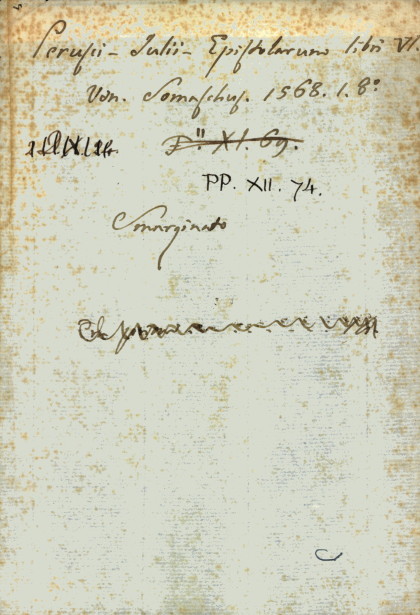 Perusci - Julii - Epistolarum libri VI.
Ven. Somaschus. 1568. 1. 8°
P" XI. 69.
PP. XII. 74.
Smarginato